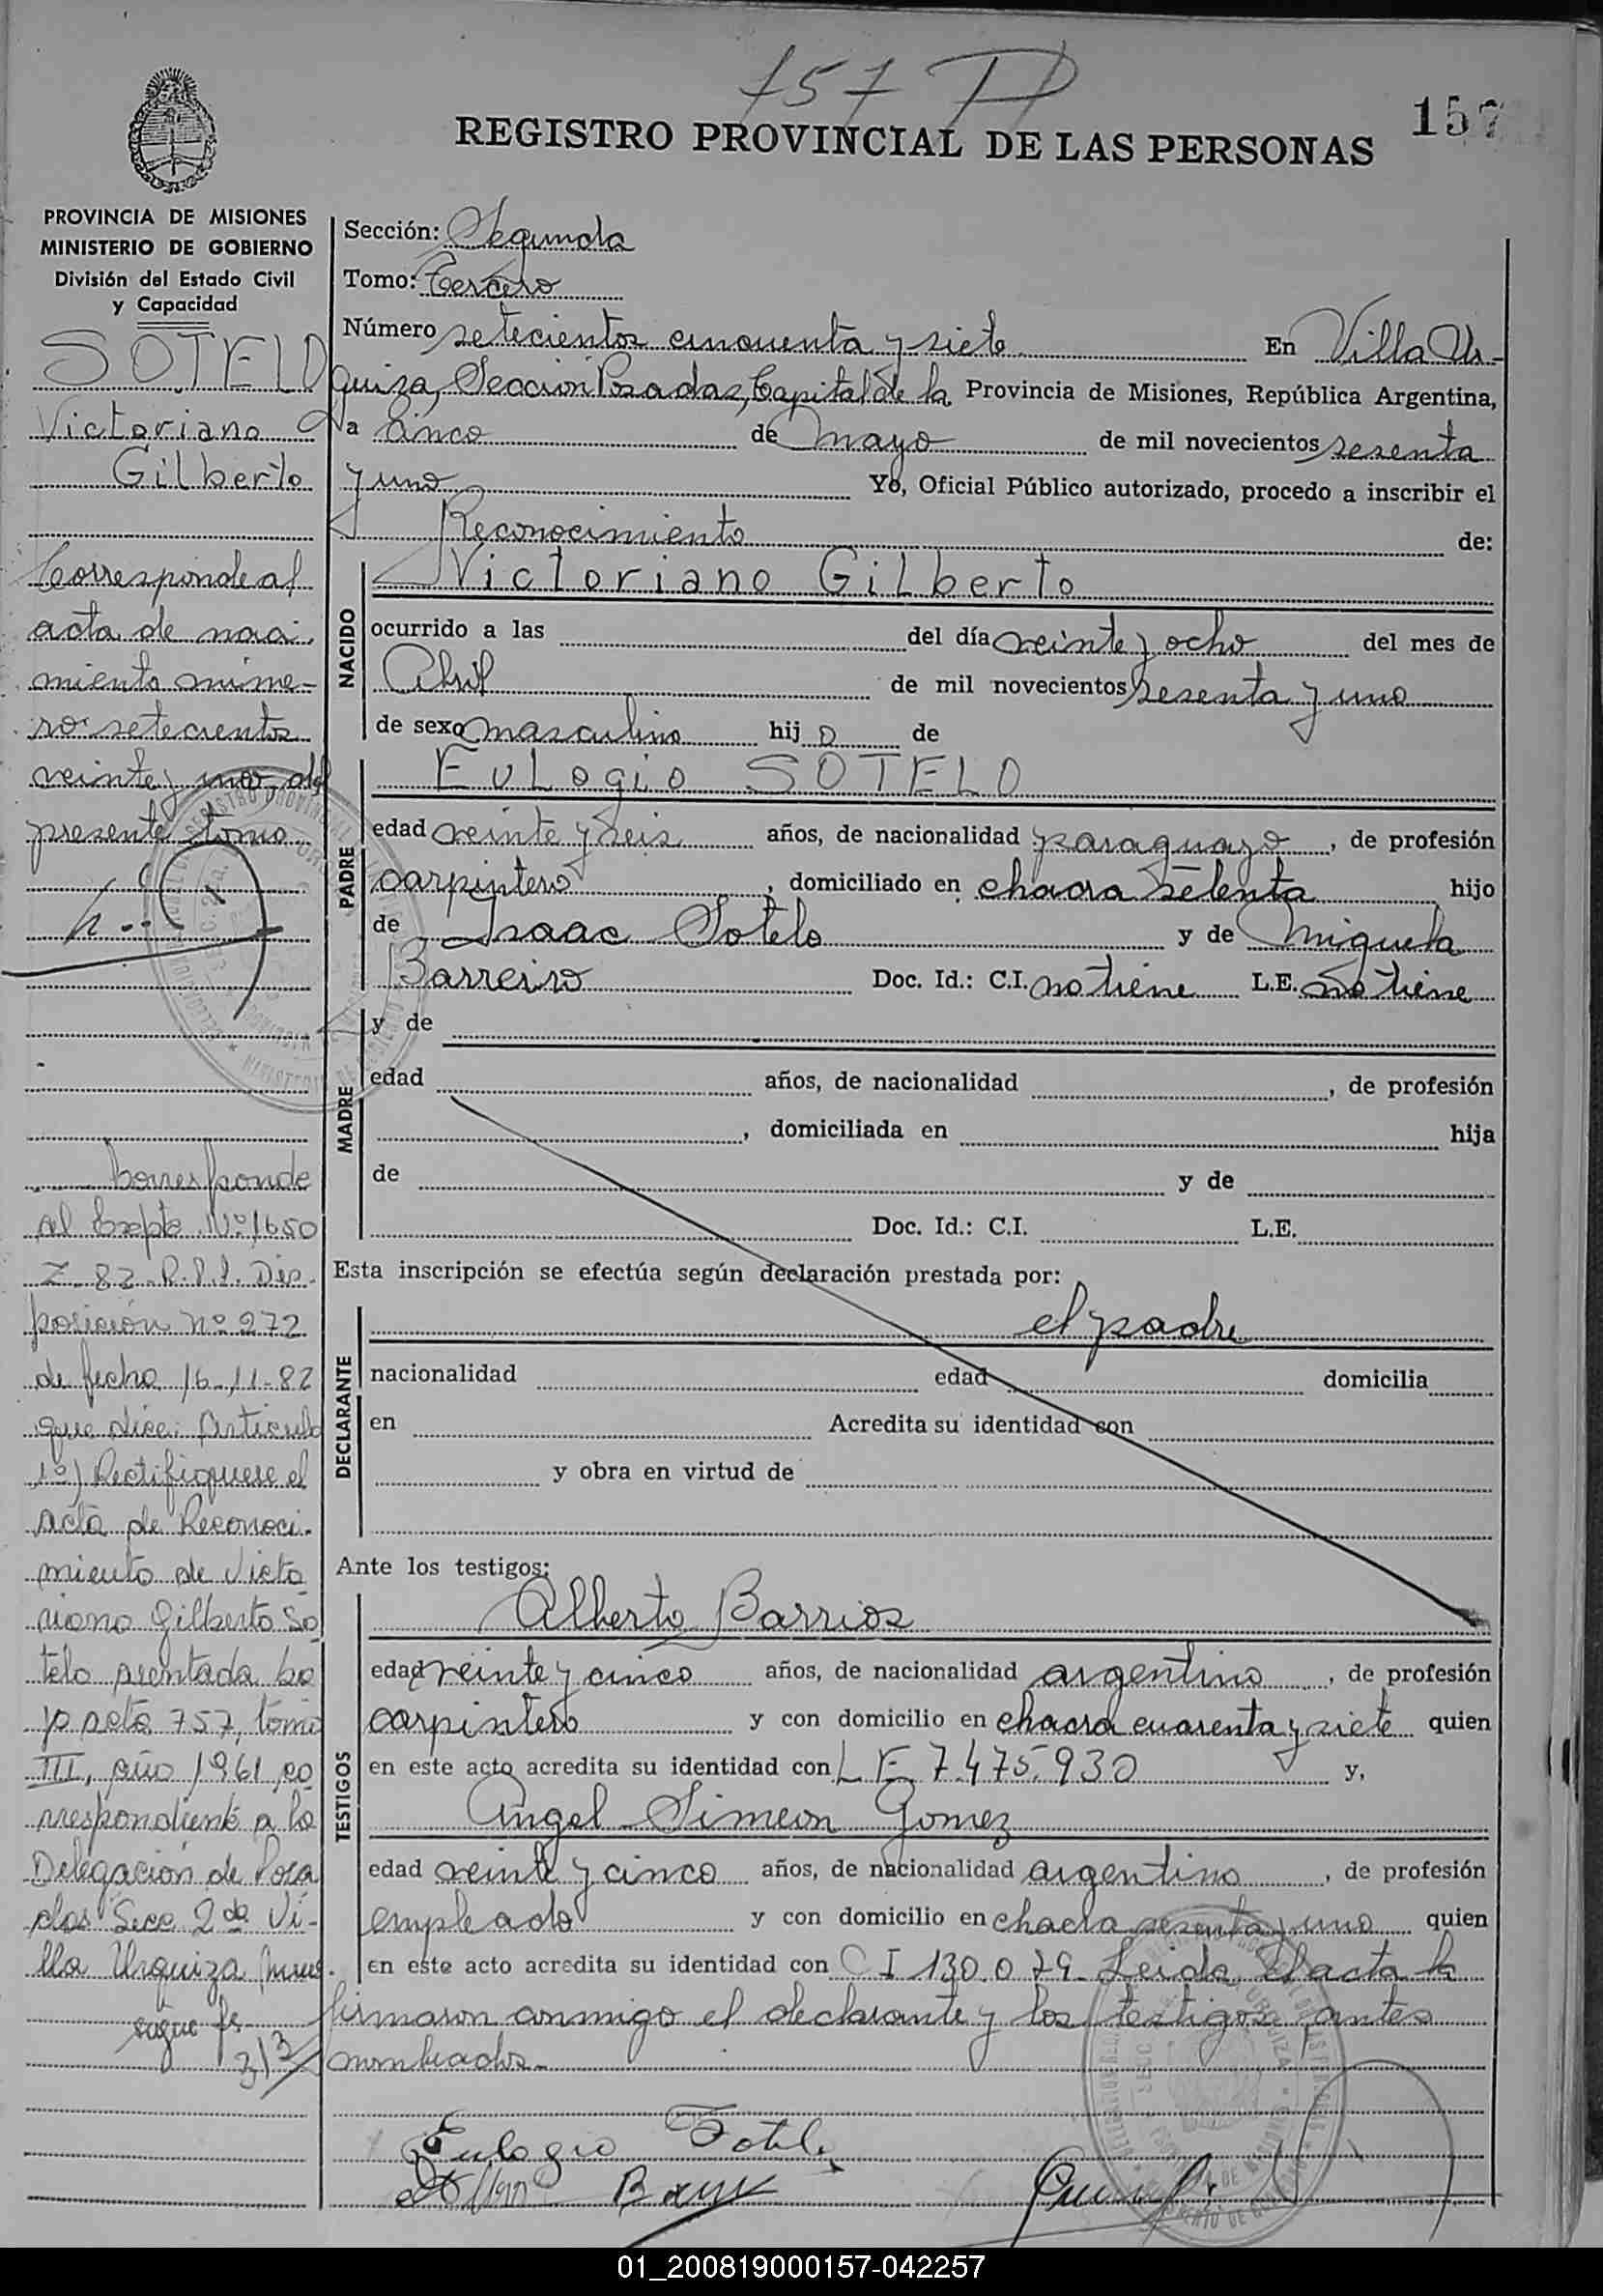 757 D
157
REGISTRO PROVINCIAL DE LAS PERSONAS
PROVINCIA DE MISIONES
MINISTERIO DE GOBIERNO
División del Estado Civil
y Capacidad
SOTELO
Victoriano
Gilberto
Corresponde al
acta de naci
miento núme-
ro setecientos
veinte y uno del
presente tomo
Corresponde
al Expte Nº 1650
Z-82-R.P.P. Dis-
posición nº 272
de fecha 16-11-82
que dice: Artículo
1º) Rectifiquese el
acta de Reconoci-
miento de Victo
riano Gilberto So
telo asentada ba
jo acta 757, tomo
III, año 1961, co
rrespondiente a la
Delegación de Posa
das Secc 2da Vi-
lla Urquiza
sigue fs.
313
Sección: Segunda
Tomo: Tercero
Número setecientos cincuenta y siete En Villa Ur-
quiza, Sección Posadas, Capital de la Provincia de Misiones, República Argentina,
a Cinco de mayo de mil novecientos sesenta
y uno Yo, Oficial Público autorizado, procedo a inscribir el
Reconocimiento de:
Victoriano Gilberto
NACIDO
ocurrido a las del día veinte y ocho del mes de
Abril de mil novecientos sesenta y uno
de sexo masculino hij o de
Eulogio SOTELO
PADRE
edad veinte y seis años, de nacionalidad paraguayo, de profesión
carpintero, domiciliado en chacra setenta hijo
de Isaac Sotelo y de Miguela
Barreiro Doc. Id.: C.I. no tiene L.E. no tiene
y de
MADRE
edad años, de nacionalidad , de profesión
, domiciliada en hija
de y de
Doc. Id.: C.I. L.E.
Esta inscripción se efectúa según declaración prestada por:
el padre
DECLARANTE
nacionalidad edad domicilia
en Acredita su identidad con
y obra en virtud de
Ante los testigos:
Alberto Barrios
TESTIGOS
edad veinte y cinco años, de nacionalidad argentino, de profesión
carpintero y con domicilio en chacra cuarenta y siete quien
en este acto acredita su identidad con L E 7.475.930 y,
Angel Simeon Gomez
edad veinte y cinco años, de nacionalidad argentino, de profesión
empleado y con domicilio en chacra sesenta y uno quien
en este acto acredita su identidad con C I 130.079. Leida el acta la
firmaron conmigo el declarante y los testigos antes
nombrados.-
Eulogio Sotelo
01_200819000157-042257